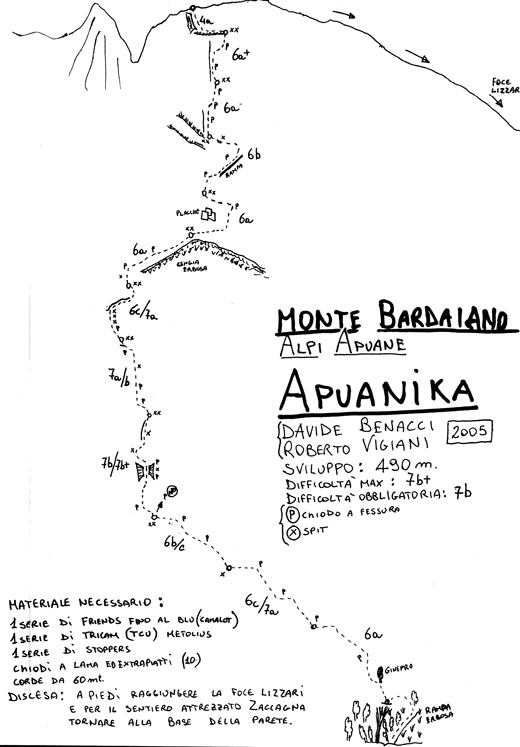 4a
xx
P
6a+
P
xx
P
6a
P
x
P
6b
RAMPA
P
xx
P
PLACCHE
6a
xx
6a
P
P
x
xx
CENGIA
ERBOSA
6c/7a
P
xx
P
7a/b
P
xx
7b/7b+
P
P
xx
6b/c
P
P
x
6c/7a
P
P
P
6a
P
P
GINEPRO
RAMPA
ERBOSA
FOCE
LIZZARI
MONTE BARDAIANO
ALPI APUANE
APUANIKA
DAVIDE BENACCI
ROBERTO VIGIANI
2005
SVILUPPO: 490 m.
DIFFICOLTÀ MAX : 7b+
DIFFICOLTÀ OBBLIGATORIA: 7b
P CHIODO A FESSURA
X SPIT
MATERIALE NECESSARIO :
1 SERIE DI FRIENDS FINO AL BLU (CAMALOT)
1 SERIE DI TRICAM (TCU) METOLIUS
1 SERIE DI STOPPERS
CHIODI A LAMA ED EXTRAPIATTI (10)
CORDE DA 60 mt.
DISCESA: A PIEDI RAGGIUNGERE LA FOCE LIZZARI
E PER IL SENTIERO ATTREZZATO ZACCAGNA
TORNARE ALLA BASE DELLA PARETE.